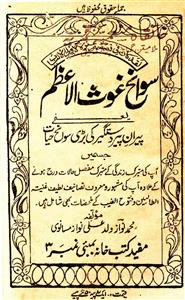 جملہ حقوق محفوظ ہیں
سوانح غوث الاعظم
یعنی
پیران پیر دستگیر کی بڑی سوانح حیات
جسمیں
آپ کی متبرک زندگی کے مفصل حالات درج ہونے
کے علاوہ آپ کی مشہور و معروف تصانیف لطیف غنیۃ
الطالبین و فتوح الغیب کے بھی شامل ہیں
مؤلفہ
محمد نواز ولد علی نواز
مفید کتب خانہ بمبئی نمبر ۳
قیمت